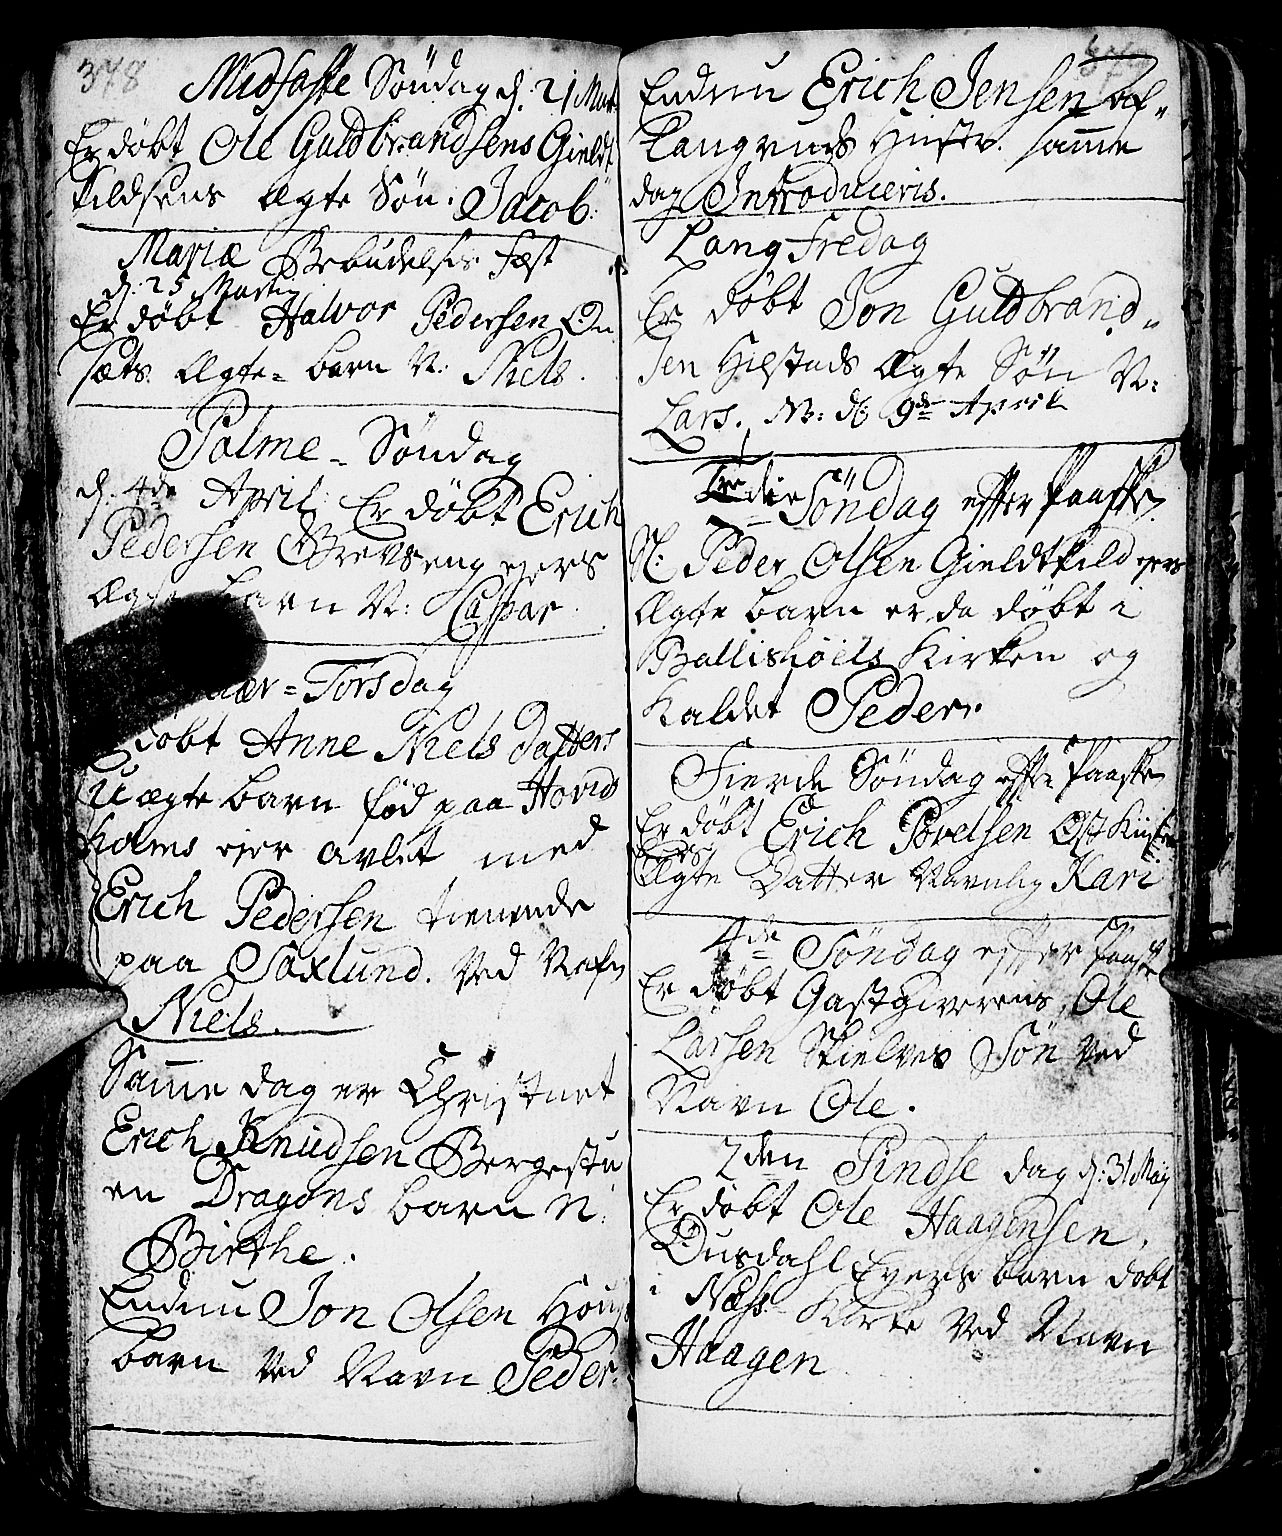 378
Midfaste Söndag d. 21 Mart
Er döbt Ole Guldbrandsens Gieldt
kildsens ægte Sön: Jacob.
Mariæ Bebudelses Fæst
d. 25 Martij
Er döbt Halvor Pedersen On
sæts ægte= barn N: Niels.
Palme= Söndag
d. 4de April: Er döbt Erich
Pedersen Grevseng ejers
ægte barn N: Caspar.
Skiær=Torsdag
Er döbt Anne Niels Datters
Uægte barn föd paa Hovind
holms ejer avlet med
Erich Pedersen tienende
paa Saxlund. Ved Nafn
Niels.
Samme dag er Christnet
Erich Knudsen Bergestu
en Dragons barn N:
Birthe.
Endnu Jon Olsen Houg
barn ved Navn Peder.
Endnu Erich Jensen af
Langruds Hustr. samme
dag Introduceris.
Lang Fredag
Er döbt Jon Guldbrand=
sen Hilstads ægte Sön N:
Lars. NB: d: 9de April
Tredie Söndag efter Paaske
N: Peder Olsen Gieldtkild ejers
ægte barn er da döbt i
Ballishöels Kirken og
kaldet Peder.
Fierde Söndag efter Paaske
Er döbt Erich Povelsen Ost Kiister
ægte Datter Navnlig Kari
4de Söndag efter Paaske
Er döbt Gastgiverens, Ole
Larsen Skielves Sön ved
Navn Ole.
2den Pindse dag d: 31 Maij
Er döbt Ole Haagensen
Dusdahl Eyers barn döbt
i Næss Kirke ved Navn
Haagen